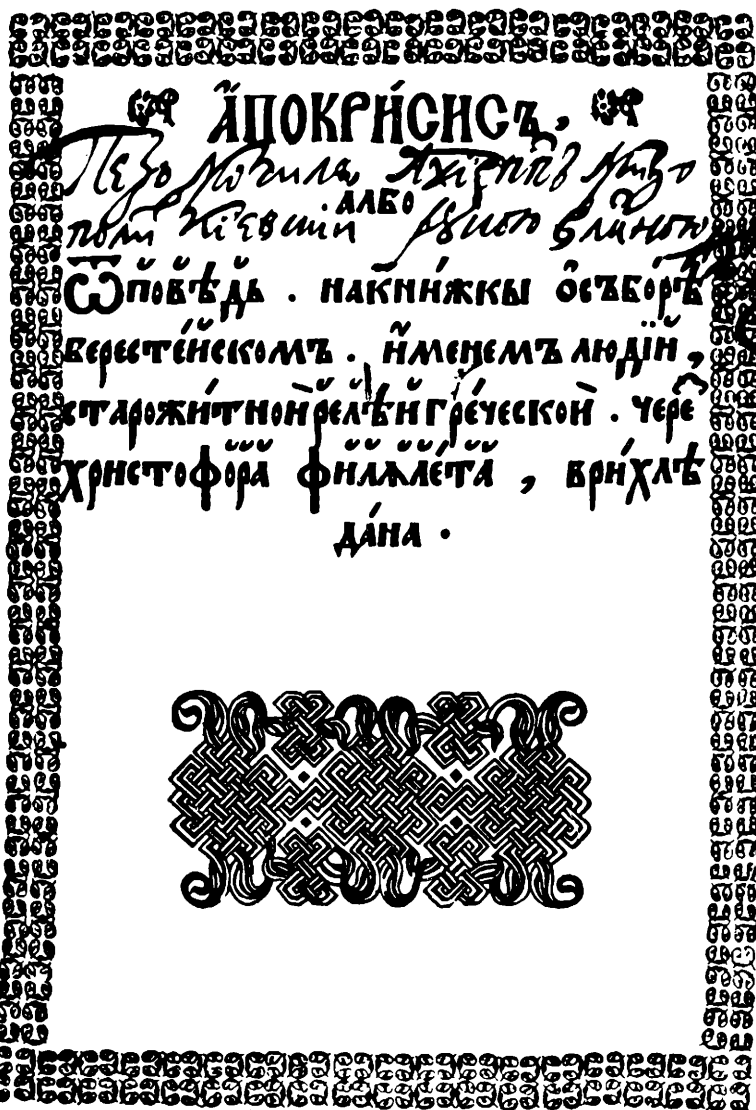 А҆ПОКРИ́СИСЪ,
Петръ Могила Архіеппъ Митро
АЛБО
поли Кіевский рукою власною
Ѿповѣдь . на кни́жкы о съборѣ
Берестейскомъ . и҆менемъ людїй ,
старожи́тной релѣи гре́ческой . чере
христофора филѧле́та , врихлѣ
да́на .